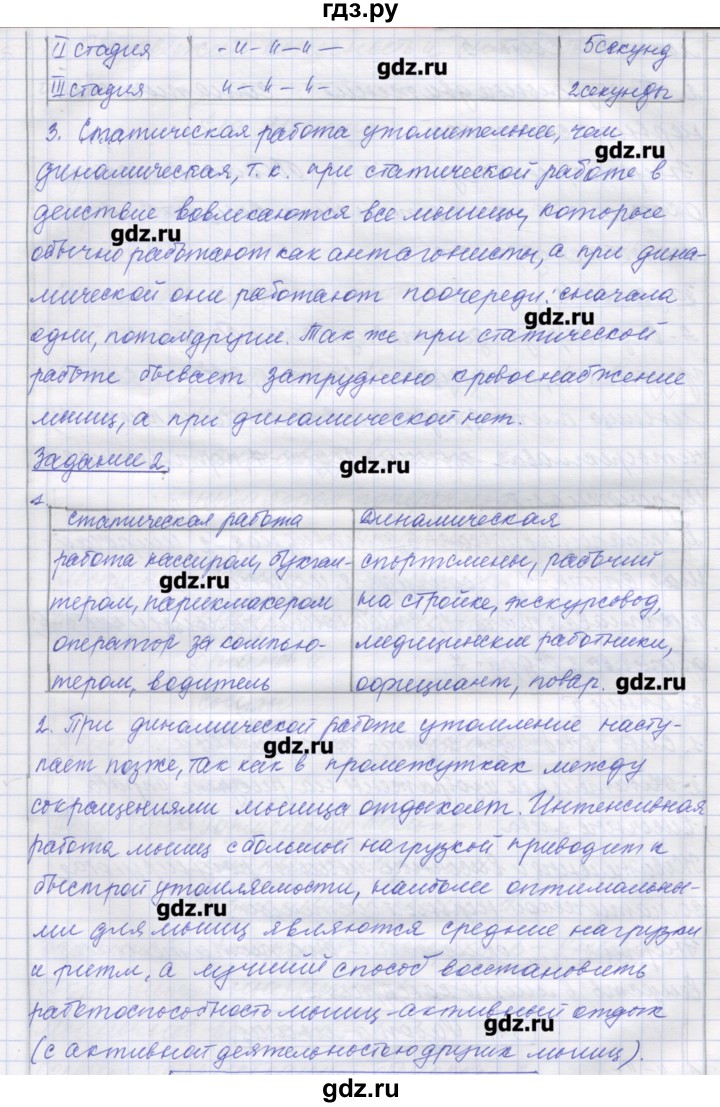 гдз.ру
II стадия -"-"-"- 5 секунд
gdz.ru
III стадия "-"-"- 2 секунды
3. Статическая работа утомительнее, чем
gdz.ru
динамическая, т.к. при статической работе в
действие вовлекаются все мышцы, которые
gdz.ru
обычно работают как антагонисты, а при дина-
мической они работают поочереди: сначала
gdz.ru
одни, потом другие. Так же при статической
работе бывает затруднено кровоснабжение
мышц, а при динамической нет.
Задание 2.
gdz.ru
1.
статическая работа динамическая
работа кассиром, бухгал- спортсмены, рабочий
gdz.ru
тером, парикмахером на стройке, экскурсовод,
оператор за компью- медицинские работники,
тером, водитель официант, повар.
gdz.ru
2. При динамической работе утомление насту-
gdz.ru
пает позже, так как в промежутках между
сокращениями мышца отдыхает. Интенсивная
работа мышц с большой нагрузкой приводит к
быстрой утомляемости, наиболее оптимальны-
gdz.ru
ми для мышц являются средние нагрузки
и ритм, а лучший способ восстановить
работоспособность мышц - активный отдых
gdz.ru
(с активной деятельностью других мышц).
gdz.ru